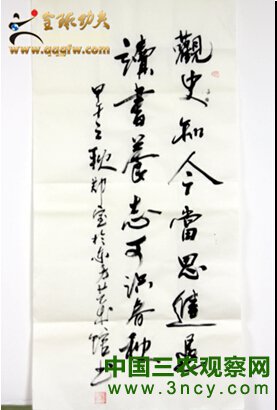 全球功夫
www.qqgfw.com
觀史知今當思進退
讀書養志可識春秋
甲午之秋於東方艺术馆
中国三农观察网
www.3ncy.com